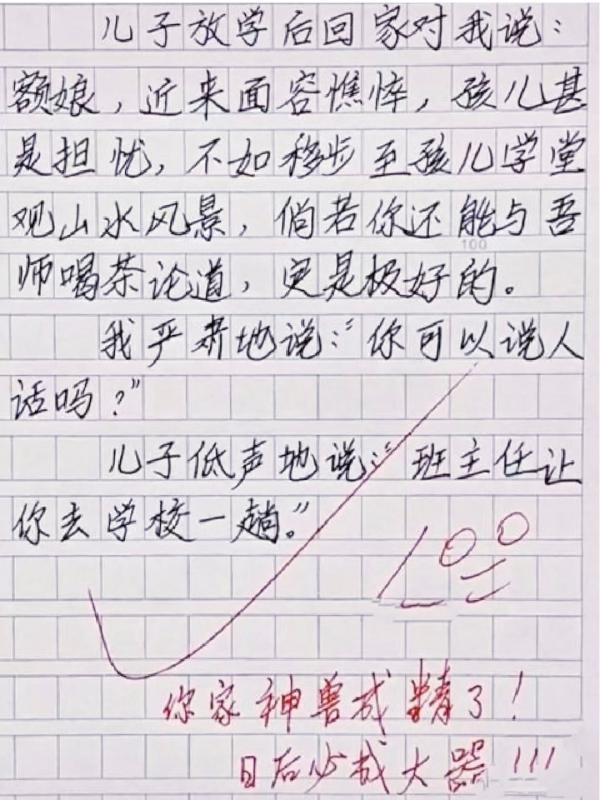 儿子放学后回家对我说：
额娘，近来面容憔悴，孩儿甚
是担忧，不如移步至孩儿学堂
观山水风景，倘若你还能与吾
100
师喝茶论道，实是极好的。
我严肃地说：“你可以说人
话吗？”
儿子低声地说：“班主任让
你去学校一趟。”
100
你家神兽成精了！
日后必成大器！！！